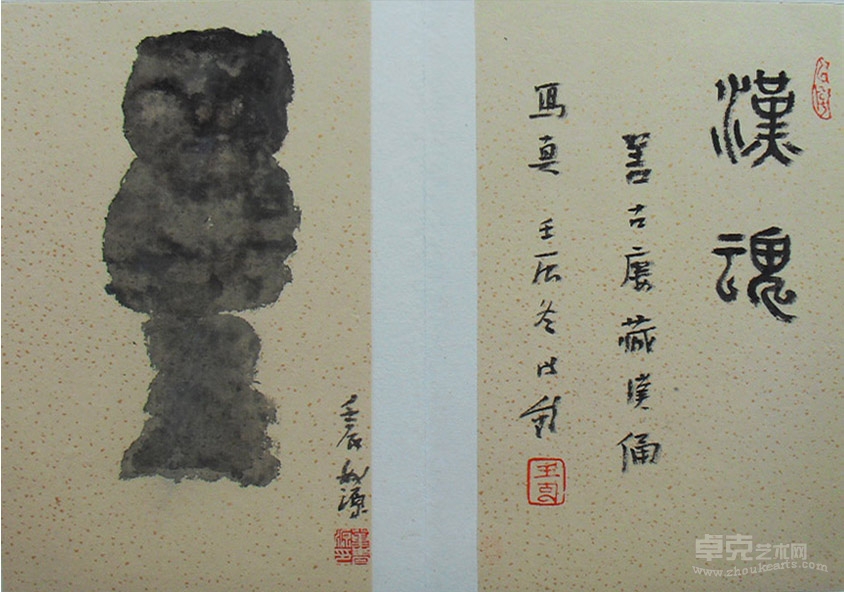 漢魂
善古廔藏漢俑
寫真 壬辰冬
壬辰
卓克艺术网
www.zhoukearts.com